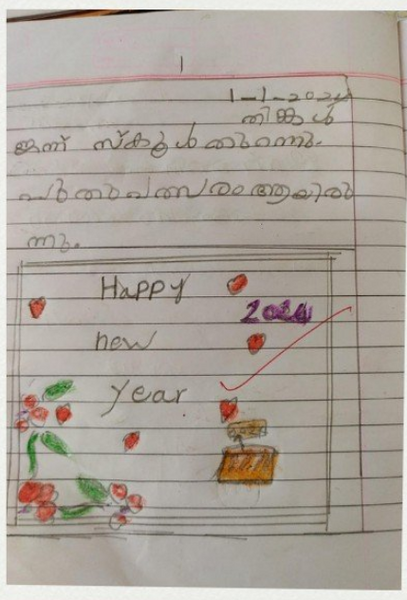 1
1-1-2024
തിങ്കൾ
ഇന്ന് സ്കൂൾ തുറന്നു.
പുതുവത്സരം ആയിരു
ന്നു.
Happy
2024
new
year